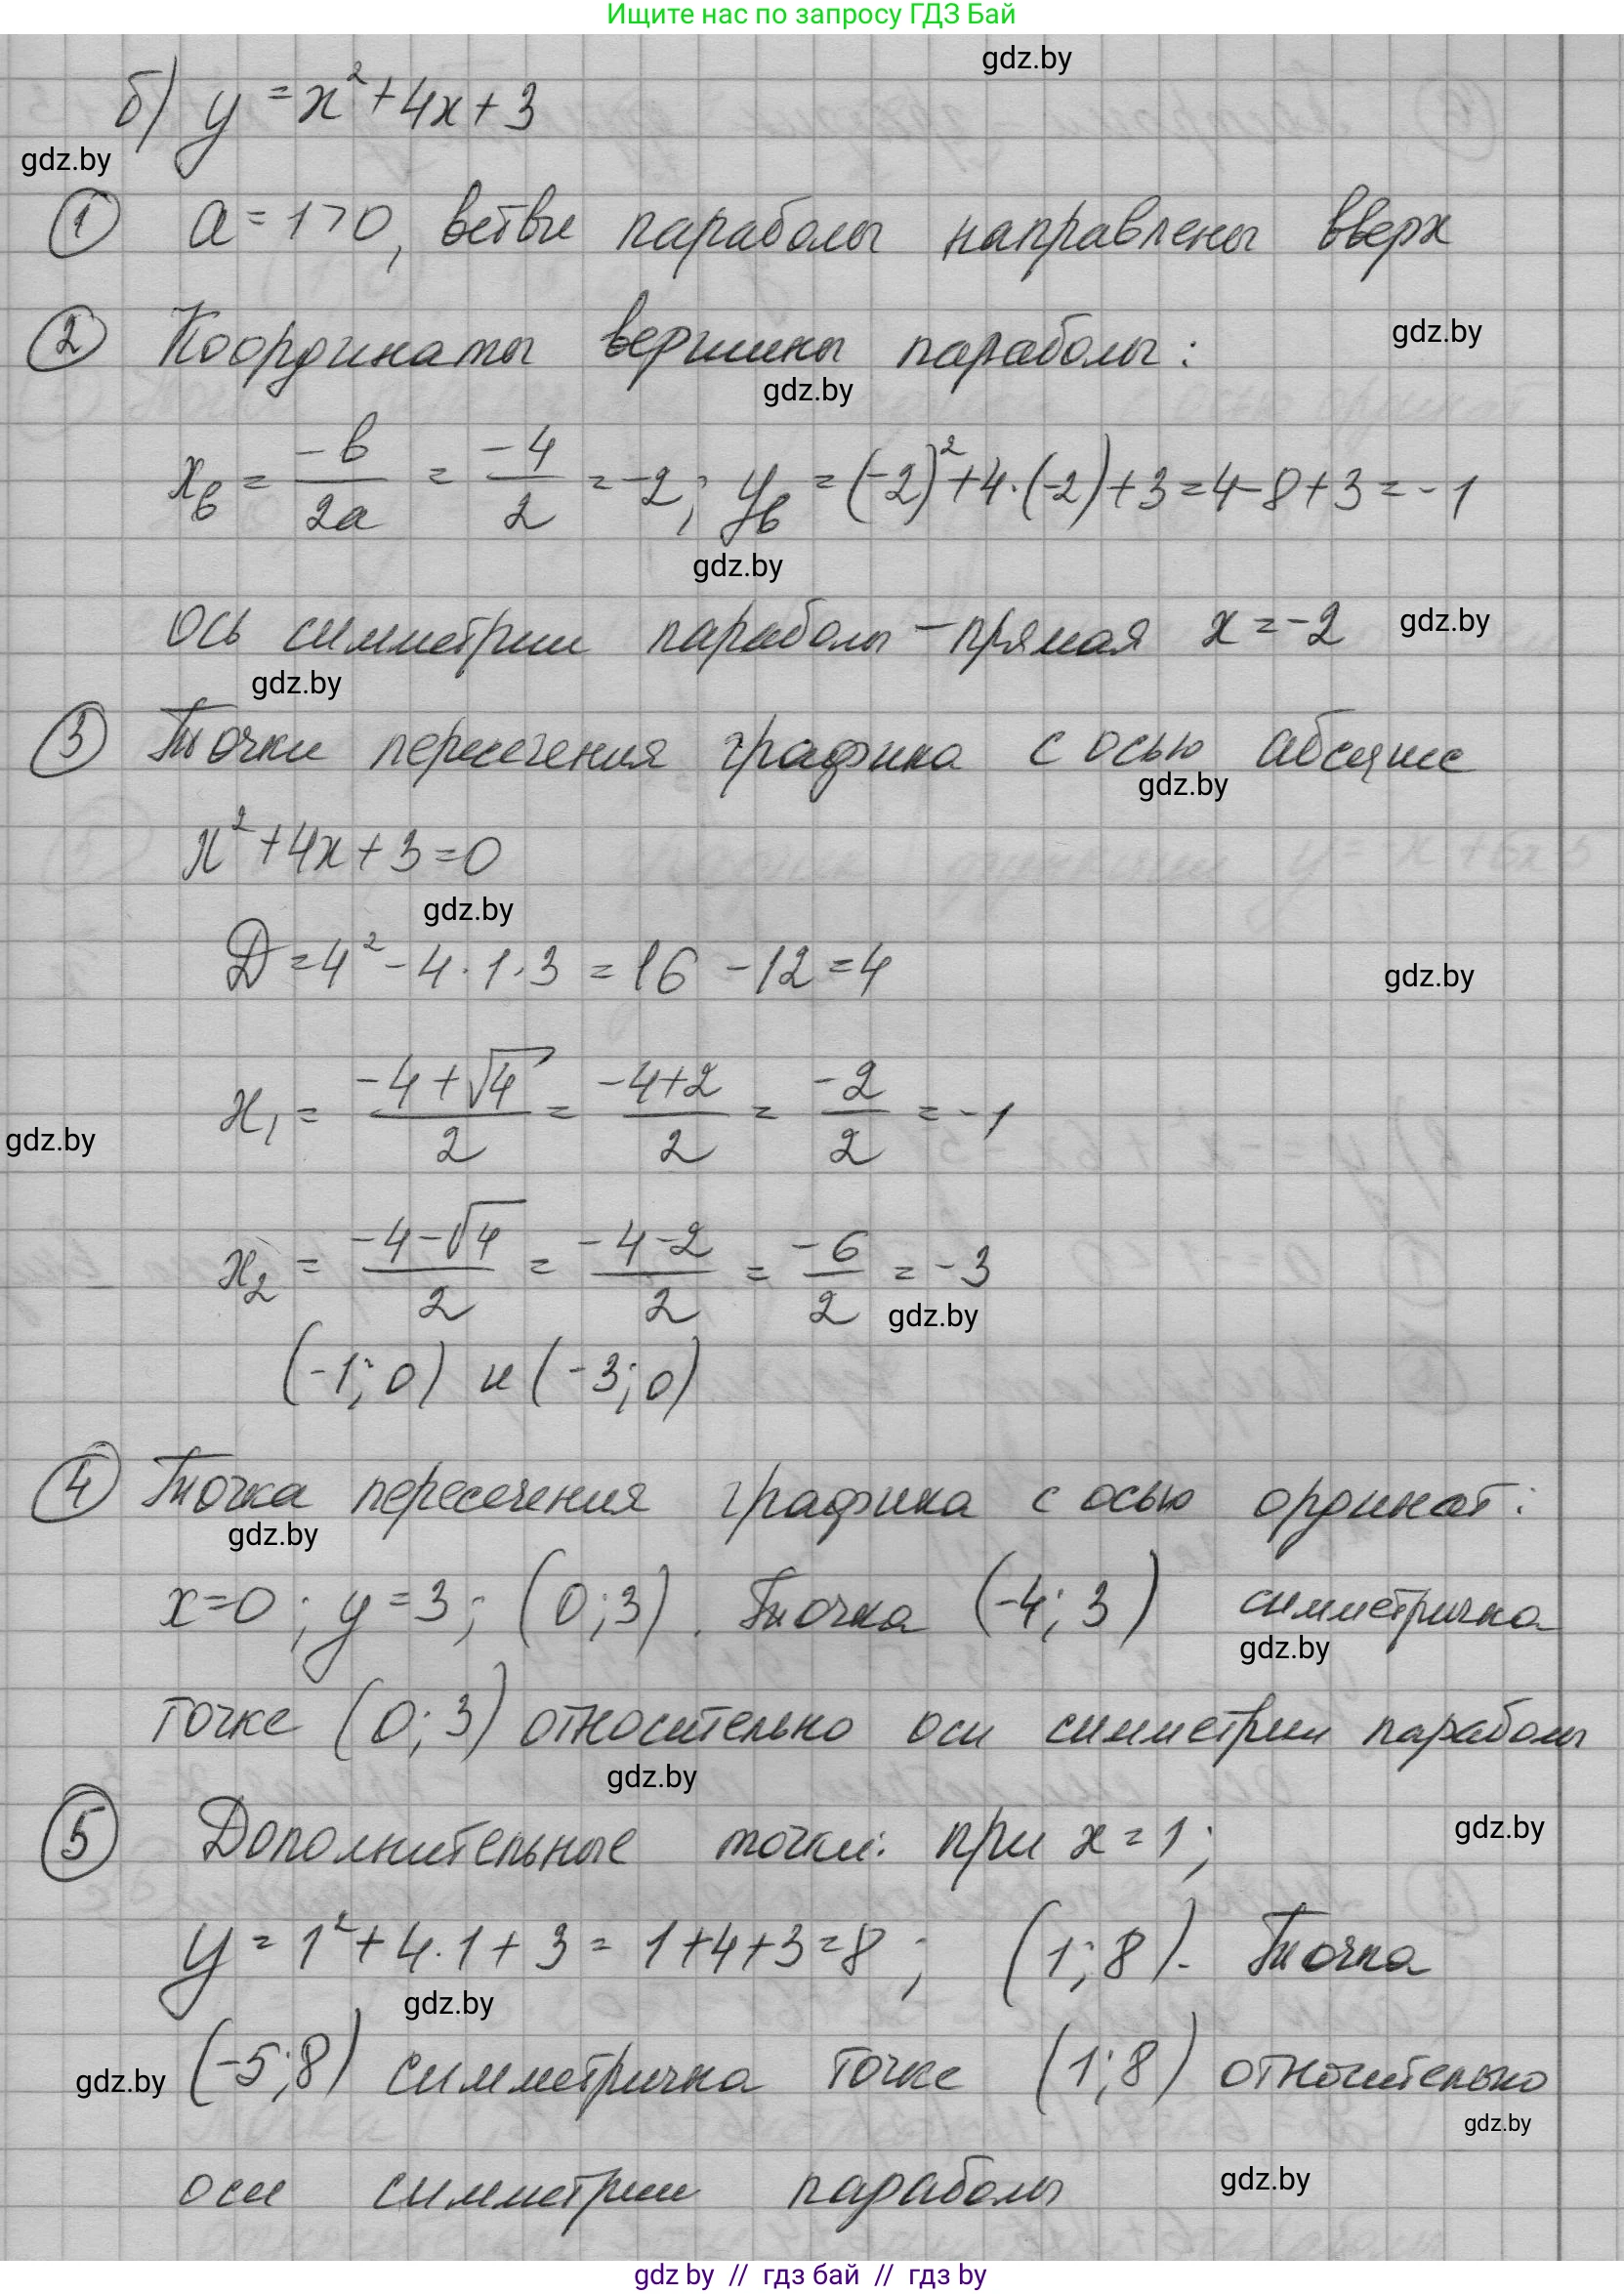 Ищите нас по запросу ГДЗ Бай
gdz.by
б) y = x² + 4x + 3
gdz.by
① a = 1 > 0, ветви параболы направлены вверх
② Координаты вершины параболы:
gdz.by
gdz.by
x_в = -b/2a = -4/2 = -2; y_в = (-2)² + 4·(-2) + 3 = 4 - 8 + 3 = -1
gdz.by
ось симметрии параболы – прямая x = -2
gdz.by
gdz.by
③ Точки пересечения графика с осью абсцисс
gdz.by
x² + 4x + 3 = 0
gdz.by
D = 4² - 4·1·3 = 16 - 12 = 4
gdz.by
x₁ = (-4+√4)/2 = (-4+2)/2 = -2/2 = -1
gdz.by
x₂ = (-4-√4)/2 = (-4-2)/2 = -6/2 = -3
gdz.by
(-1; 0) и (-3; 0)
④ Точка пересечения графика с осью ординат:
gdz.by
x = 0; y = 3; (0; 3). Точка (-4; 3) симметрична
gdz.by
точке (0; 3) относительно оси симметрии параболы
gdz.by
⑤ Дополнительные точки: при x = 1;
gdz.by
y = 1² + 4·1 + 3 = 1 + 4 + 3 = 8; (1; 8). Точка
gdz.by
gdz.by
(-5; 8) симметрична точке (1; 8) относительно
gdz.by
оси симметрии параболы
gdz.by
gdz by // гдз бай // gdz by